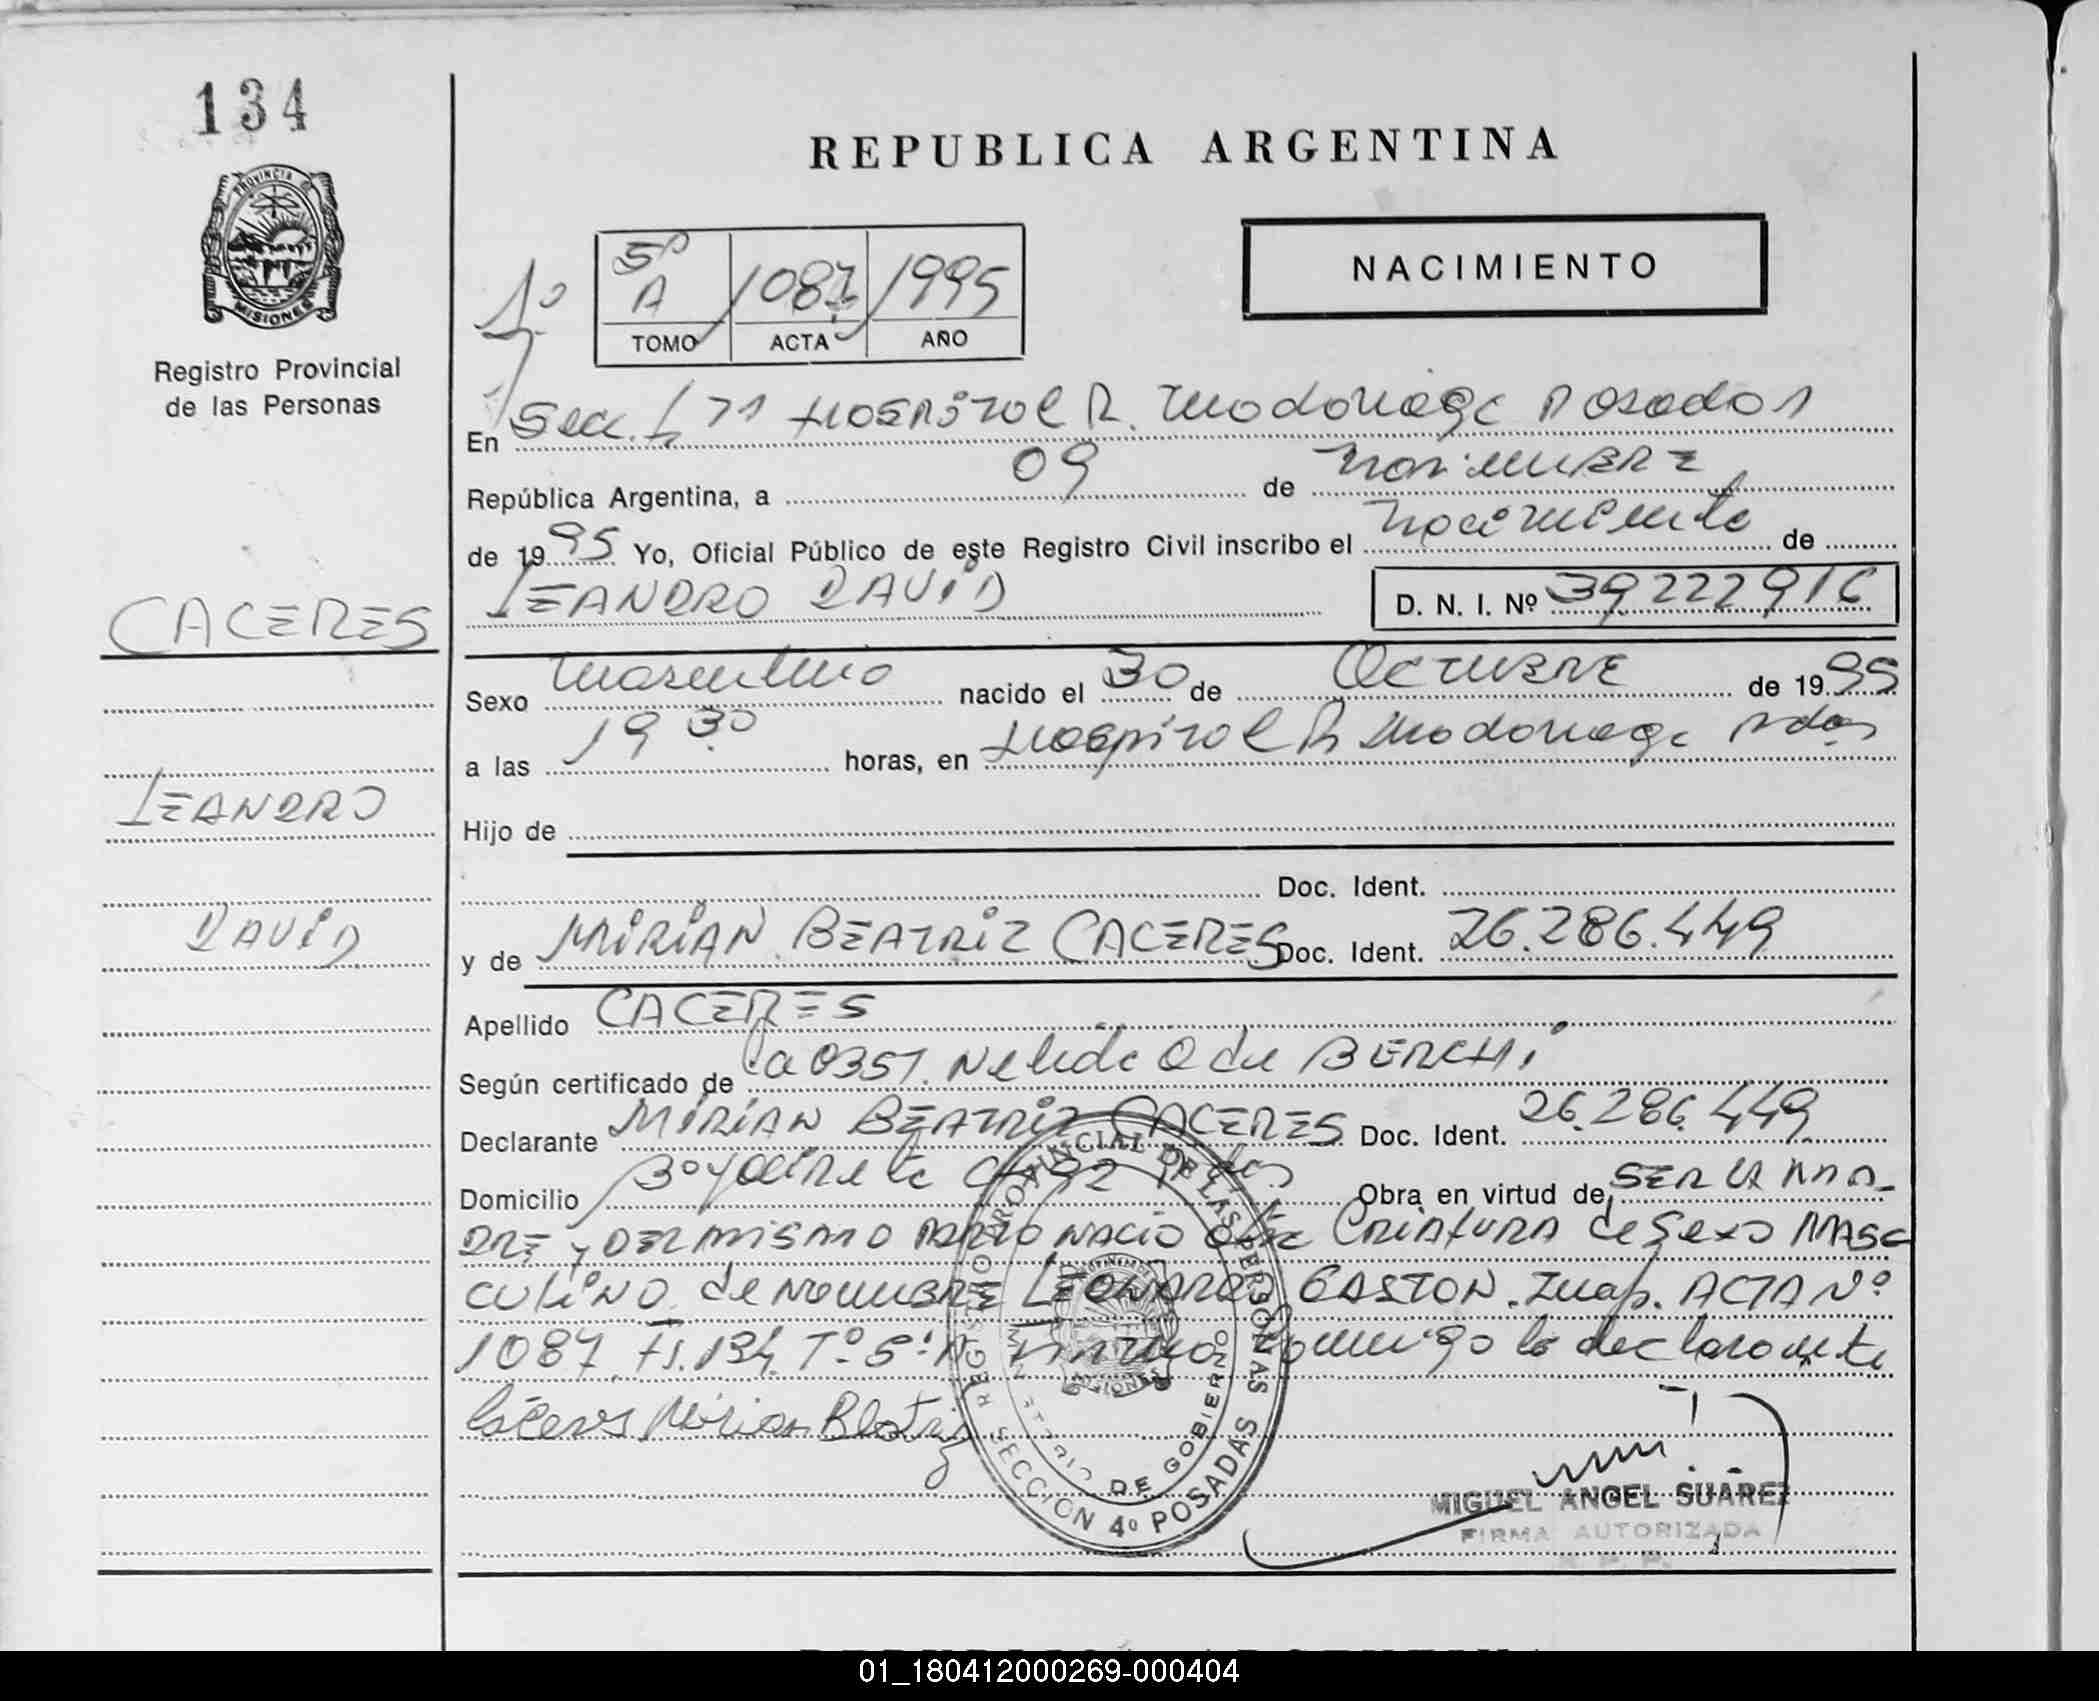 134
REPUBLICA ARGENTINA
PROVINCIA D
MISIONES
Registro Provincial
de las Personas
1º
5º
A 1087 1995
TOMO ACTA AÑO
NACIMIENTO
En Secc. 71 HOSPITAL R. Madariaga POSADAS
República Argentina, a 09 de NOVIEMBRE
de 1995 Yo, Oficial Público de este Registro Civil inscribo el Nacimiento de
LEANDRO DAVID D. N. I. Nº 39222916
CACERES
LEANDRO
DAVID
Sexo Masculino nacido el 30 de OCTUBRE de 1995
a las 19 30 horas, en Hospital R Madariaga Pdas
Hijo de
Doc. Ident.
y de MIRIAN BEATRIZ CACERES Doc. Ident. 26.286.449
Apellido CACERES
Según certificado de La 0351. Nelida O de BERCHI,
Declarante MIRIAN BEATRIZ CACERES Doc. Ident. 26.286.449
Domicilio CH 92 Pdas Obra en virtud de SER LA MA-
DRE y DEL MISMO PARTO NACIO otra CRIATURA de Sexo MAS
CULINO de NOMBRE LEONARDO GASTON. Insp. ACTA Nº
1087 Fs. 134 Tº 5º A FIRMA conmigo la declarante
Cáceres Mirian Beatriz
REGISTRO PROVINCIAL DE LAS PERSONAS
SECCION 4º POSADAS
MINISTERIO DE GOBIERNO
MISIONES
MIGUEL ANGEL SUAREZ
FIRMA AUTORIZADA
R. P. P.
01_180412000269-000404